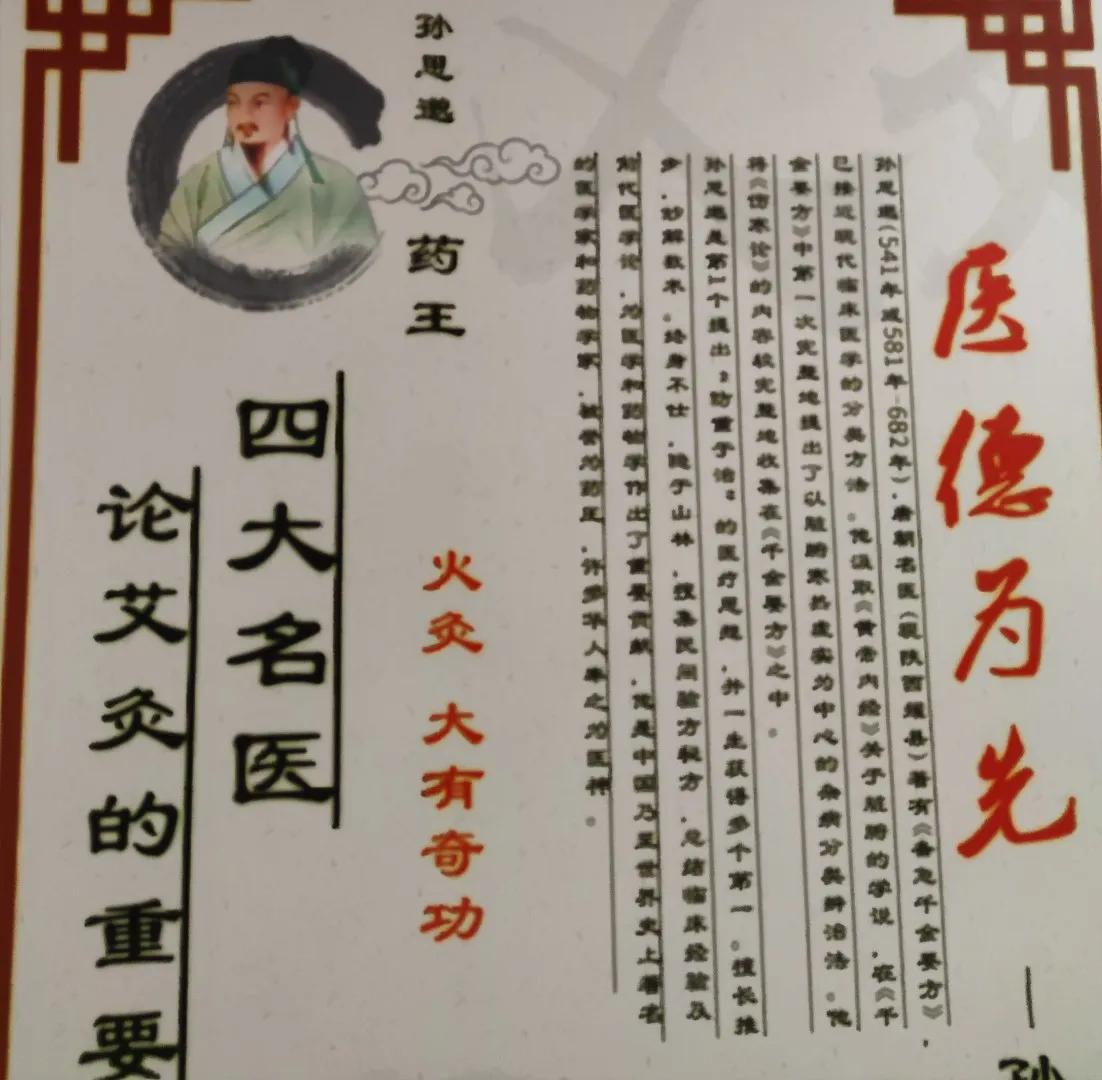 医德为先
—孙
孙思邈(541年或581年-682年),唐朝名医(现陕西耀县)著有《备急千金要方》,
已接近现代临床医学的分类方法。他汲取《黄帝内经》关于脏腑的学说,在《千
金要方》中第一次完整地提出了以脏腑寒热虚实为中心的杂病分类辨治法。他
将《伤寒论》的内容较完整地收集在《千金要方》之中。
孙思邈是第1个提出“防重于治”的医疗思想,并一生获得多个第一。擅长推
步,妙解数术。终身不仕,隐于山林,搜集民间验方秘方,总结临床经验及
前代医学论,为医学和药物学作出了重要贡献,他是中国乃至世界史上著名
的医学家和药物学家,被誉为药王,许多华人奉之为医神。
孙思邈 药王
火灸 大有奇功
四大名医
论艾灸的重要